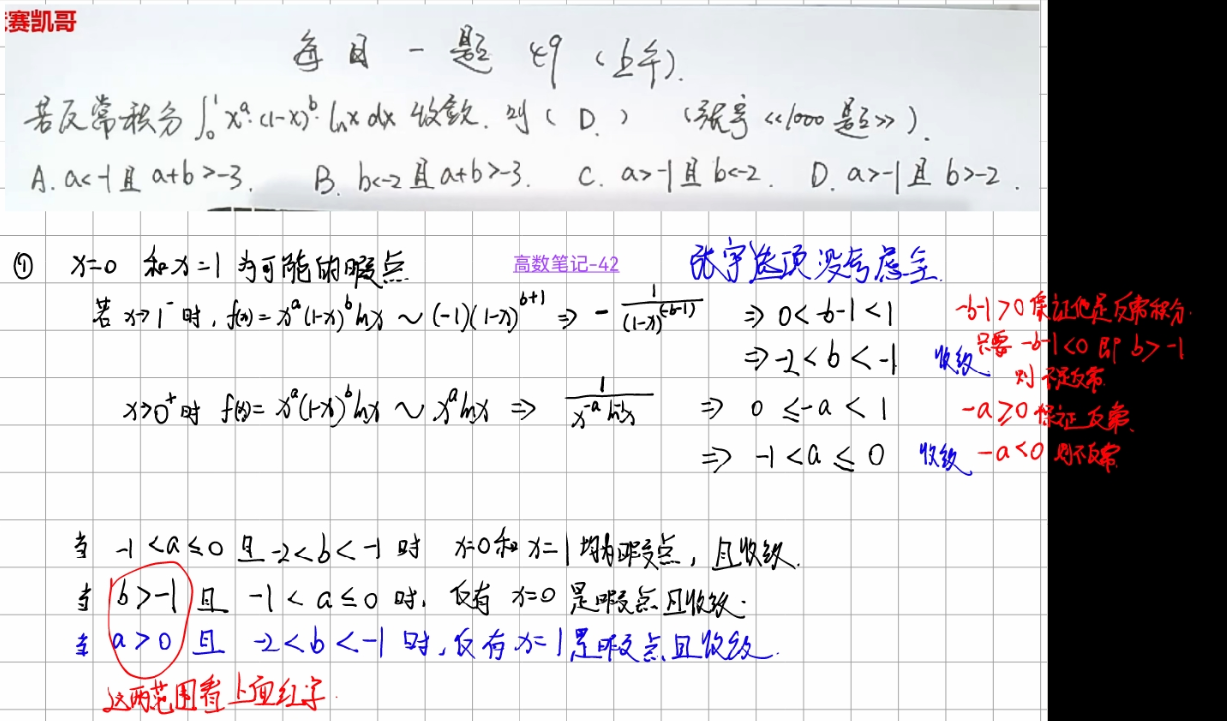 赛凯哥
每日一题 49 (上午).
若反常积分 ∫₀¹ xᵃ·(1-x)ᵇ·lnx dx 收敛. 则 ( D. ) (张宇《1000题》).
A. a<-1且 a+b>-3. B. b<-2且a+b>-3. C. a>-1且 b<-2. D. a>-1且 b>-2.
① x=0 和 x=1 为可能的瑕点 高数笔记-42 张宇选项没考虑全.
若 x→1⁻ 时, f(x)=xᵃ(1-x)ᵇlnx ~ (-1)(1-x)^(b+1) ⇒ - 1/(1-x)^(-b-1) ⇒ 0<-b-1<1 -b-1>0 保证他是反常积分.
⇒ -2<b<-1 收敛 只要 -b-1<0 即 b>-1
则不是反常
x→0⁺时 f(x)=xᵃ(1-x)ᵇlnx ~ xᵃlnx ⇒ 1/(x^(-a) ln⁻¹x) ⇒ 0≤-a<1 -a≥0 保证反常.
⇒ -1<a≤0 收敛 -a<0 则不反常
当 -1<a≤0 且 -2<b<-1 时 x=0和 x=1均为瑕点, 且收敛.
当 b>-1 且 -1<a≤0 时, 仅有 x=0 是瑕点且收敛.
当 a>0 且 -2<b<-1 时, 仅有 x=1是瑕点且收敛.
这两范围看上面红字.